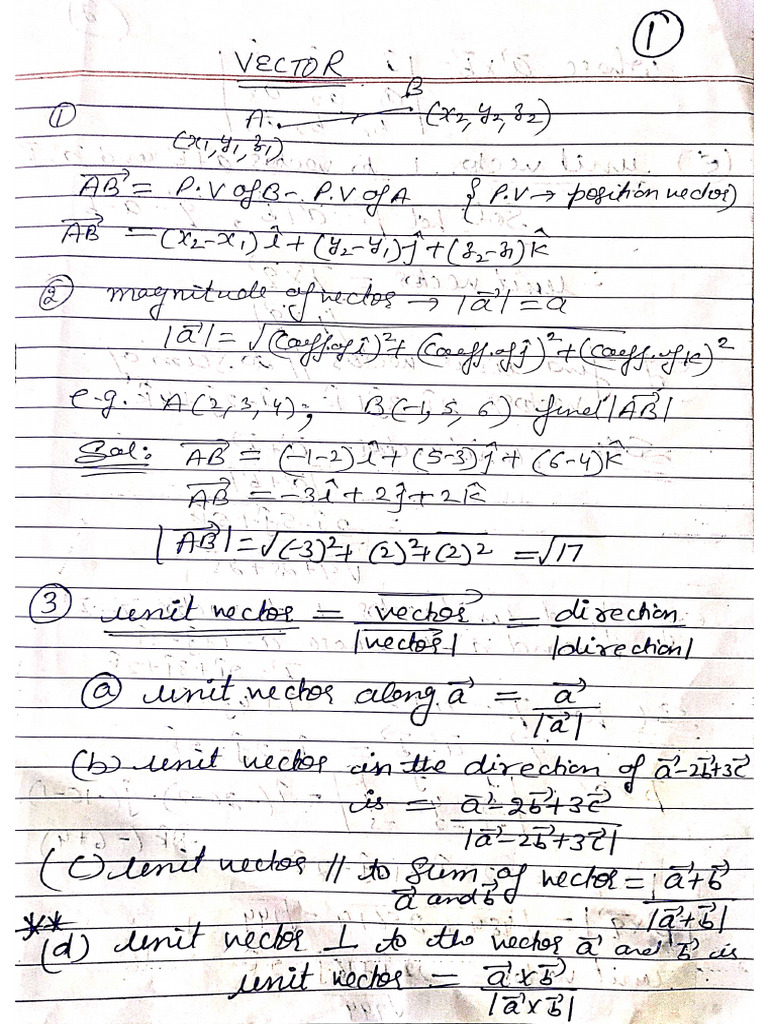 1
VECTOR
① A B (x₂, y₂, z₂)
(x₁, y₁, z₁)
AB⃗ = P.V of B - P.V of A { P.V → position vector)
AB⃗ = (x₂-x₁) î + (y₂-y₁) ĵ + (z₂-z₁) k̂
② magnitude of vector → |a⃗| = a
|a⃗| = √(Coeff. of î)² + (Coeff. of ĵ)² + (Coeff. of k)²
e.g. A(2, 3, 4); B(-1, 5, 6) find |AB⃗|
Sol: AB⃗ = (-1-2) î + (5-3) ĵ + (6-4) k̂
AB⃗ = -3î + 2ĵ + 2k̂
|AB⃗| = √(-3)² + (2)² + (2)² = √17
③ unit vector = vector⃗ / |vector⃗| = direction / |direction|
ⓐ unit vector along a⃗ = a⃗ / |a⃗|
(b) unit vector in the direction of a⃗-2b⃗+3c⃗
is = a⃗-2b⃗+3c⃗ / |a⃗-2b⃗+3c⃗|
(c) unit vector // to sum of vector = a⃗+b⃗ / |a⃗+b⃗|
a⃗ and b⃗
**
(d) unit vector ⊥ to the vector a⃗ and b⃗ is
unit vector = a⃗ x b⃗ / |a⃗ x b⃗|